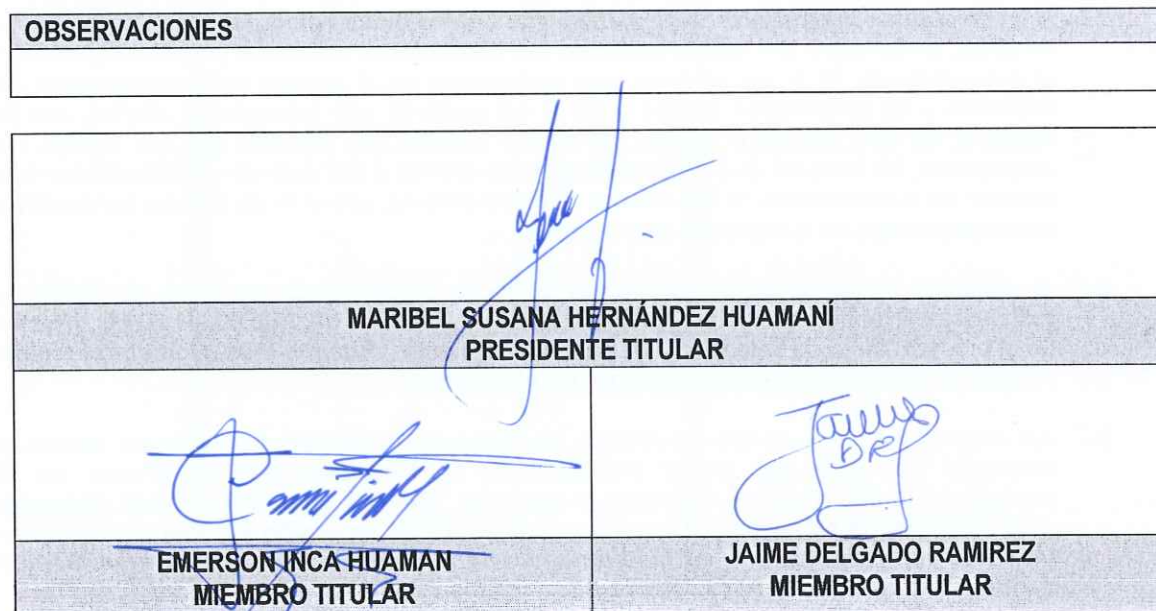 OBSERVACIONES
MARIBEL SUSANA HERNÁNDEZ HUAMANÍ
PRESIDENTE TITULAR
Jaime
DR
EMERSON INCA HUAMAN
MIEMBRO TITULAR
JAIME DELGADO RAMIREZ
MIEMBRO TITULAR